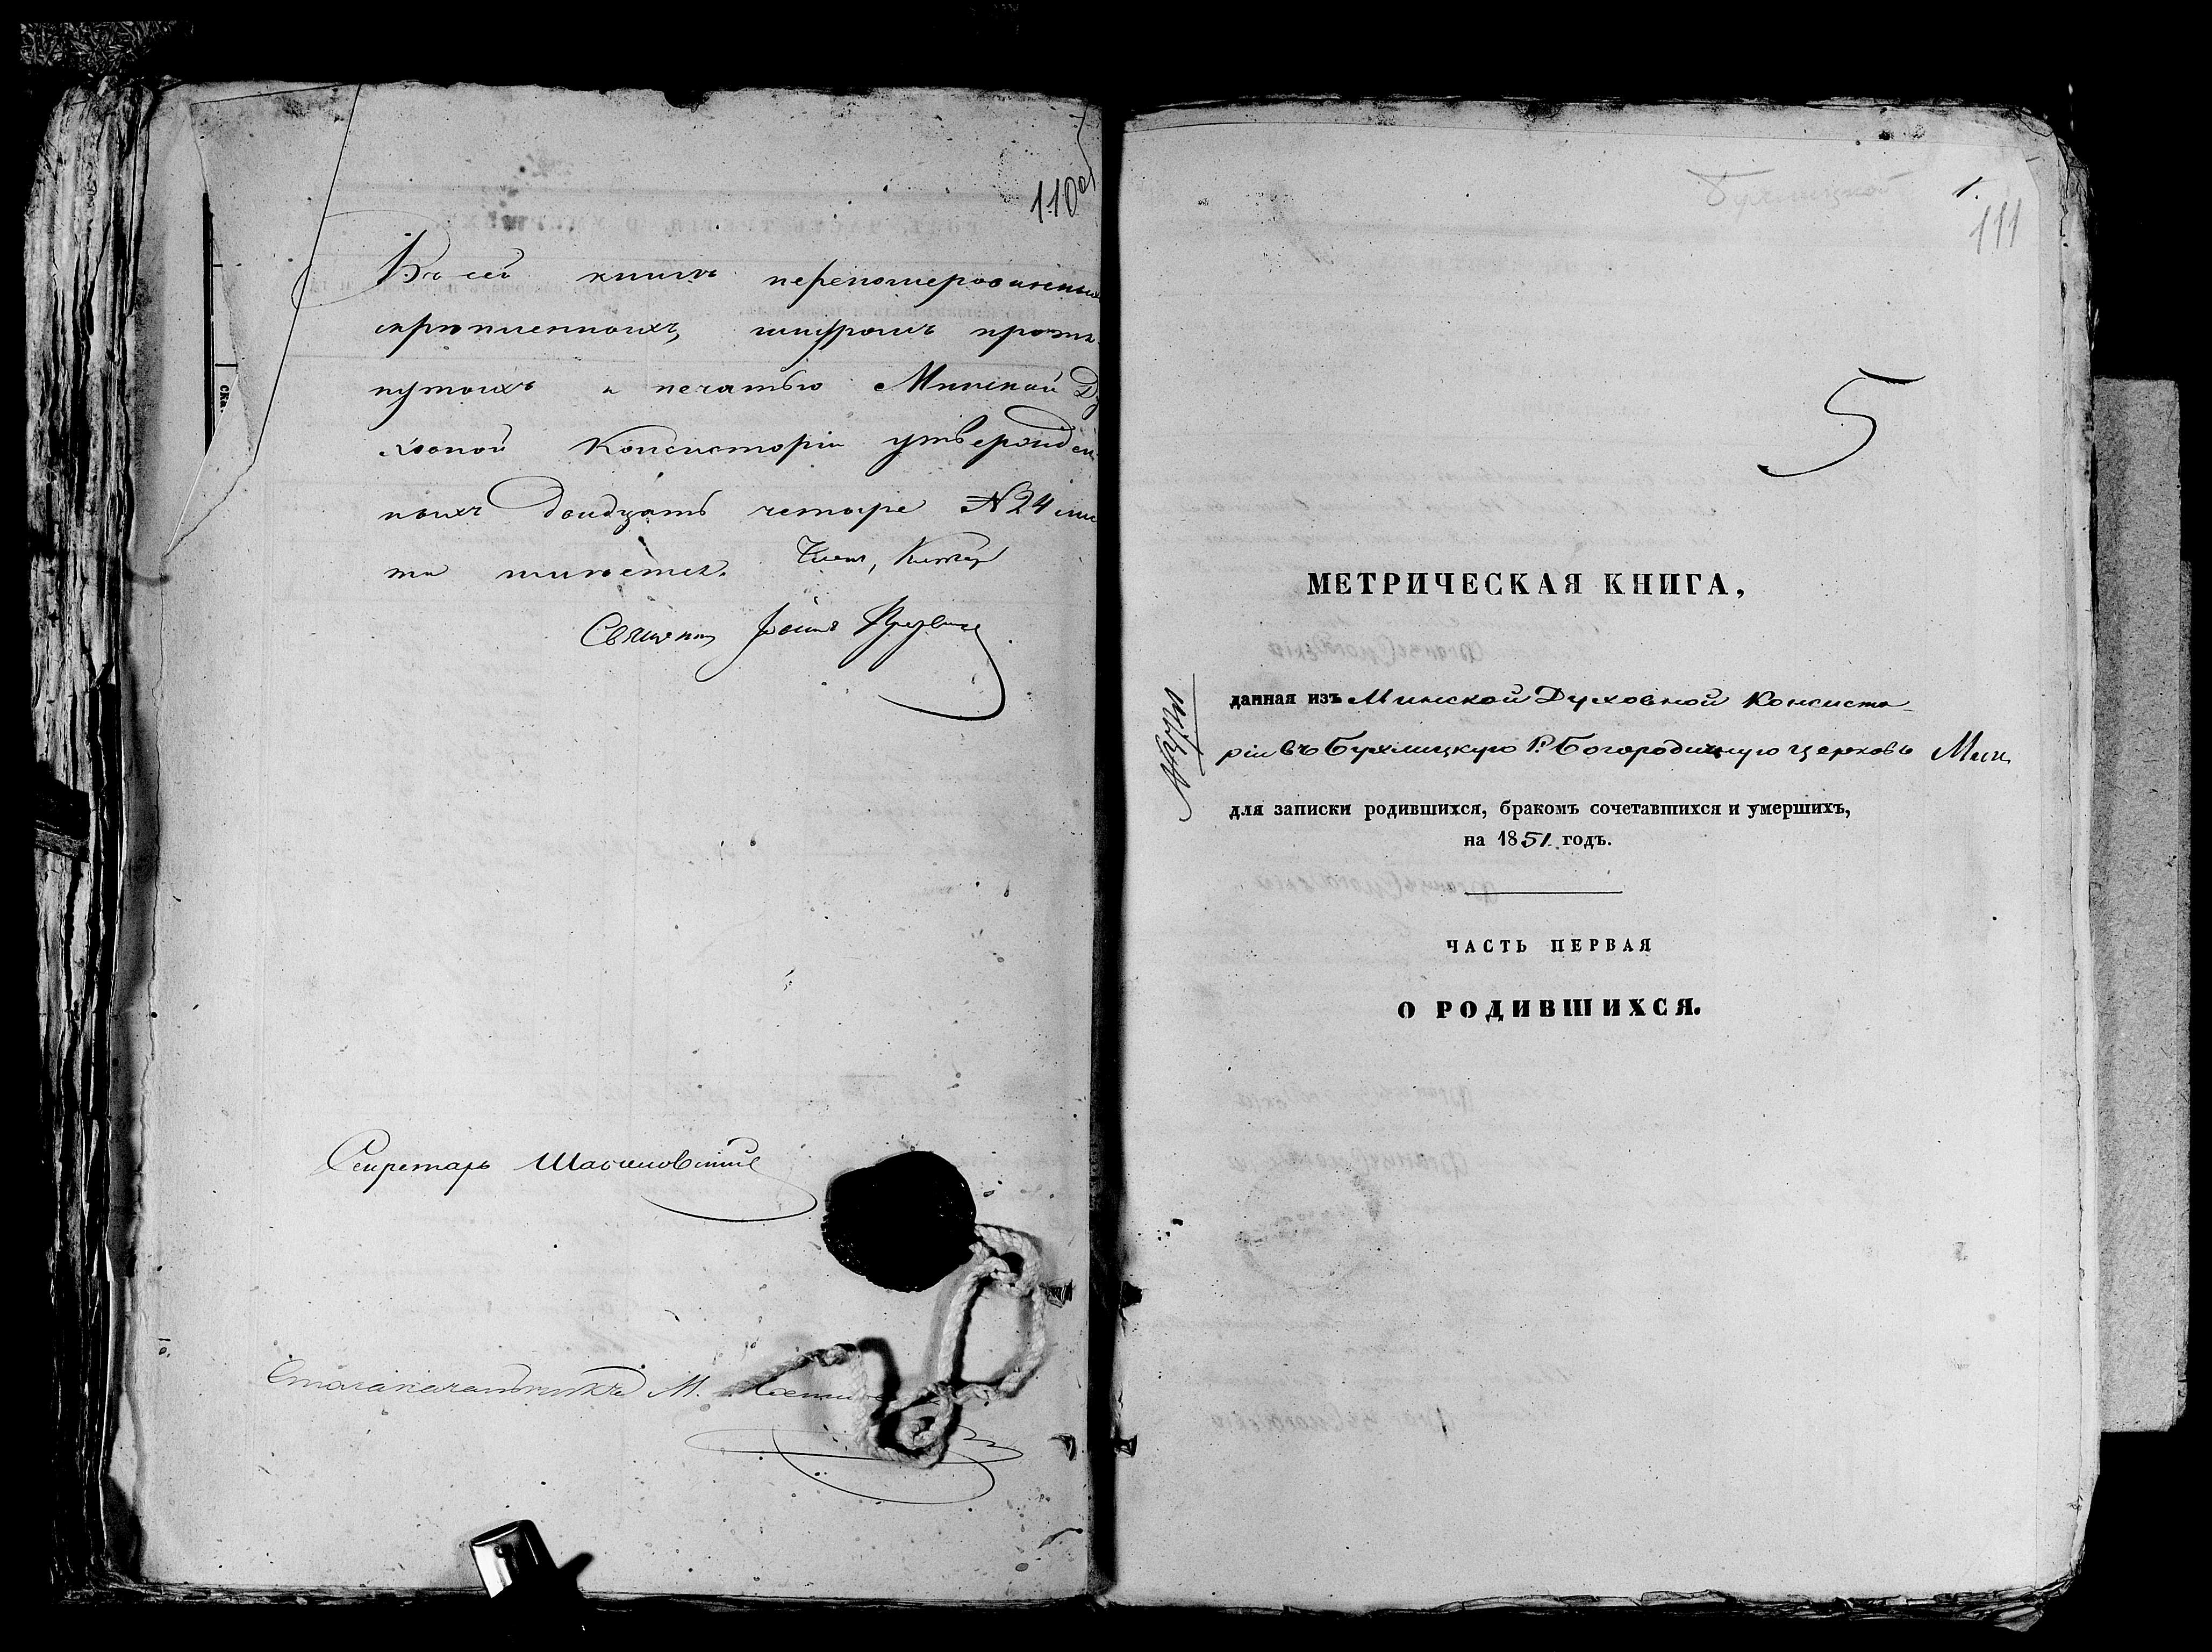 110об
Въ сей книгѣ перенумерованныхъ
скрѣпленныхъ, шнуромъ протя
нутыхъ и печатью Минской Ду
ховной Консисторіи утвержден
ныхъ двадцать четыре № 24 лис
та имѣется.
Священ Іоаннъ
Секретарь
Столоначальникъ М.
ска.
Бухлицкой
1.
111
5
МЕТРИЧЕСКАЯ КНИГА,
данная изъ Минской Духовной Консисто
ріи въ Бухлицкую Р. Богородичную церковь
для записки родившихся, бракомъ сочетавшихся и умершихъ,
на 1851 годъ.
ЧАСТЬ ПЕРВАЯ
О РОДИВШИХСЯ.